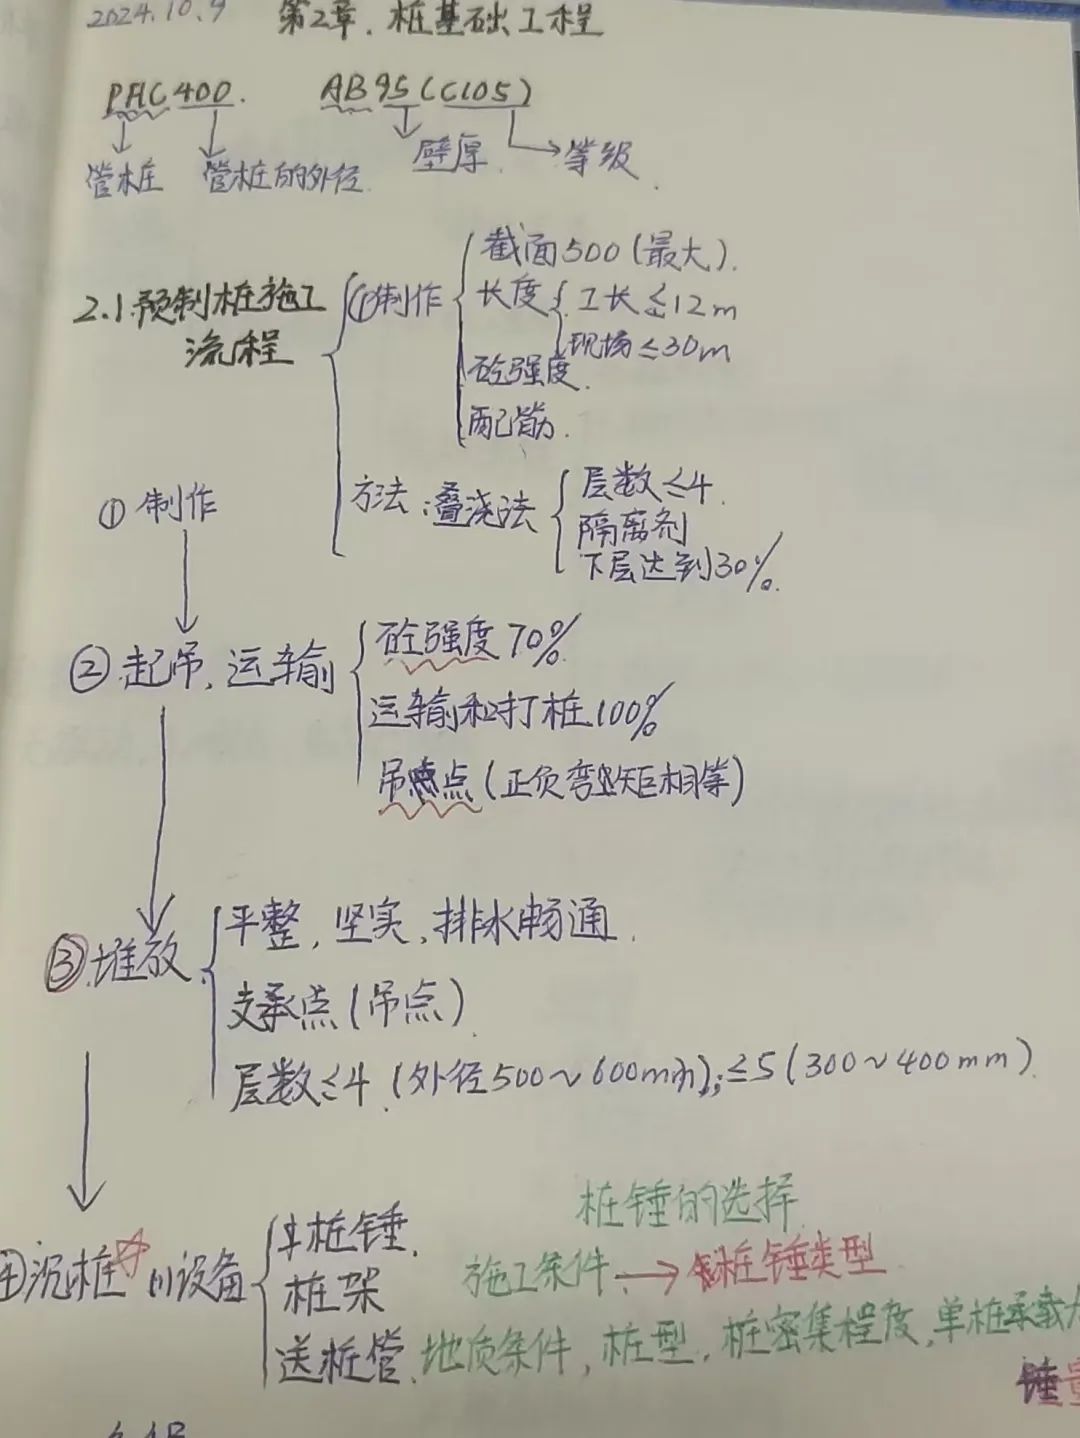 2024.10.9 第2章、桩基础工程
PHC 400. AB 95 (C105)
管桩 管桩的外径. 壁厚. 等级.
截面500(最大).
2.1.预制桩施工流程 (1)制作 长度 工长≤12m
现场≤30m
砼强度.
配筋.
① 制作 方法:叠浇法 层数≤4.
隔离剂
下层达到30%.
② 起吊、运输 砼强度70%.
运输和打桩100%
吊点(正负弯矩相等)
③.堆放 平整,坚实,排水畅通.
支承点(吊点).
层数≤4.(外径500~600mm);≤5(300~400mm).
桩锤的选择
④沉桩☆ (1)设备 桩锤.
桩架 施工条件.→桩锤类型
送桩管.地质条件,桩型,桩密集程度,单桩承载
锤